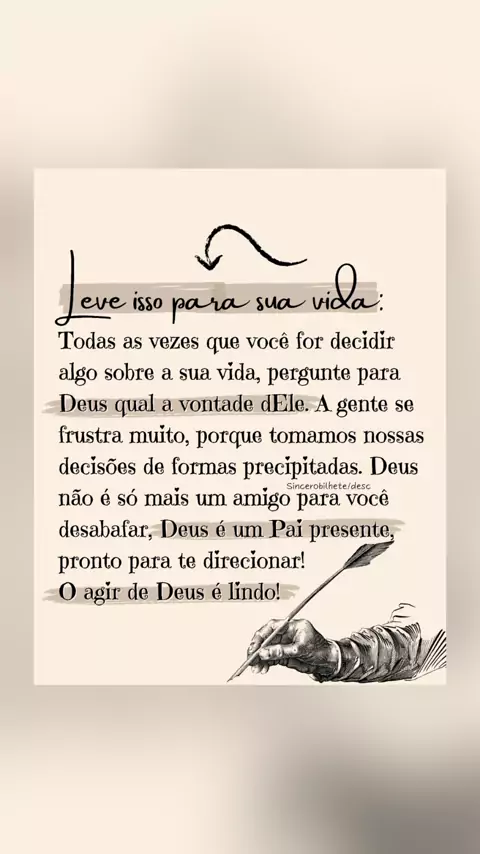 Leve isso para sua vida:
Todas as vezes que você for decidir
algo sobre a sua vida, pergunte para
Deus qual a vontade dEle. A gente se
frustra muito, porque tomamos nossas
decisões de formas precipitadas. Deus
Sincerobilhete/desc
não é só mais um amigo para você
desabafar, Deus é um Pai presente,
pronto para te direcionar!
O agir de Deus é lindo!